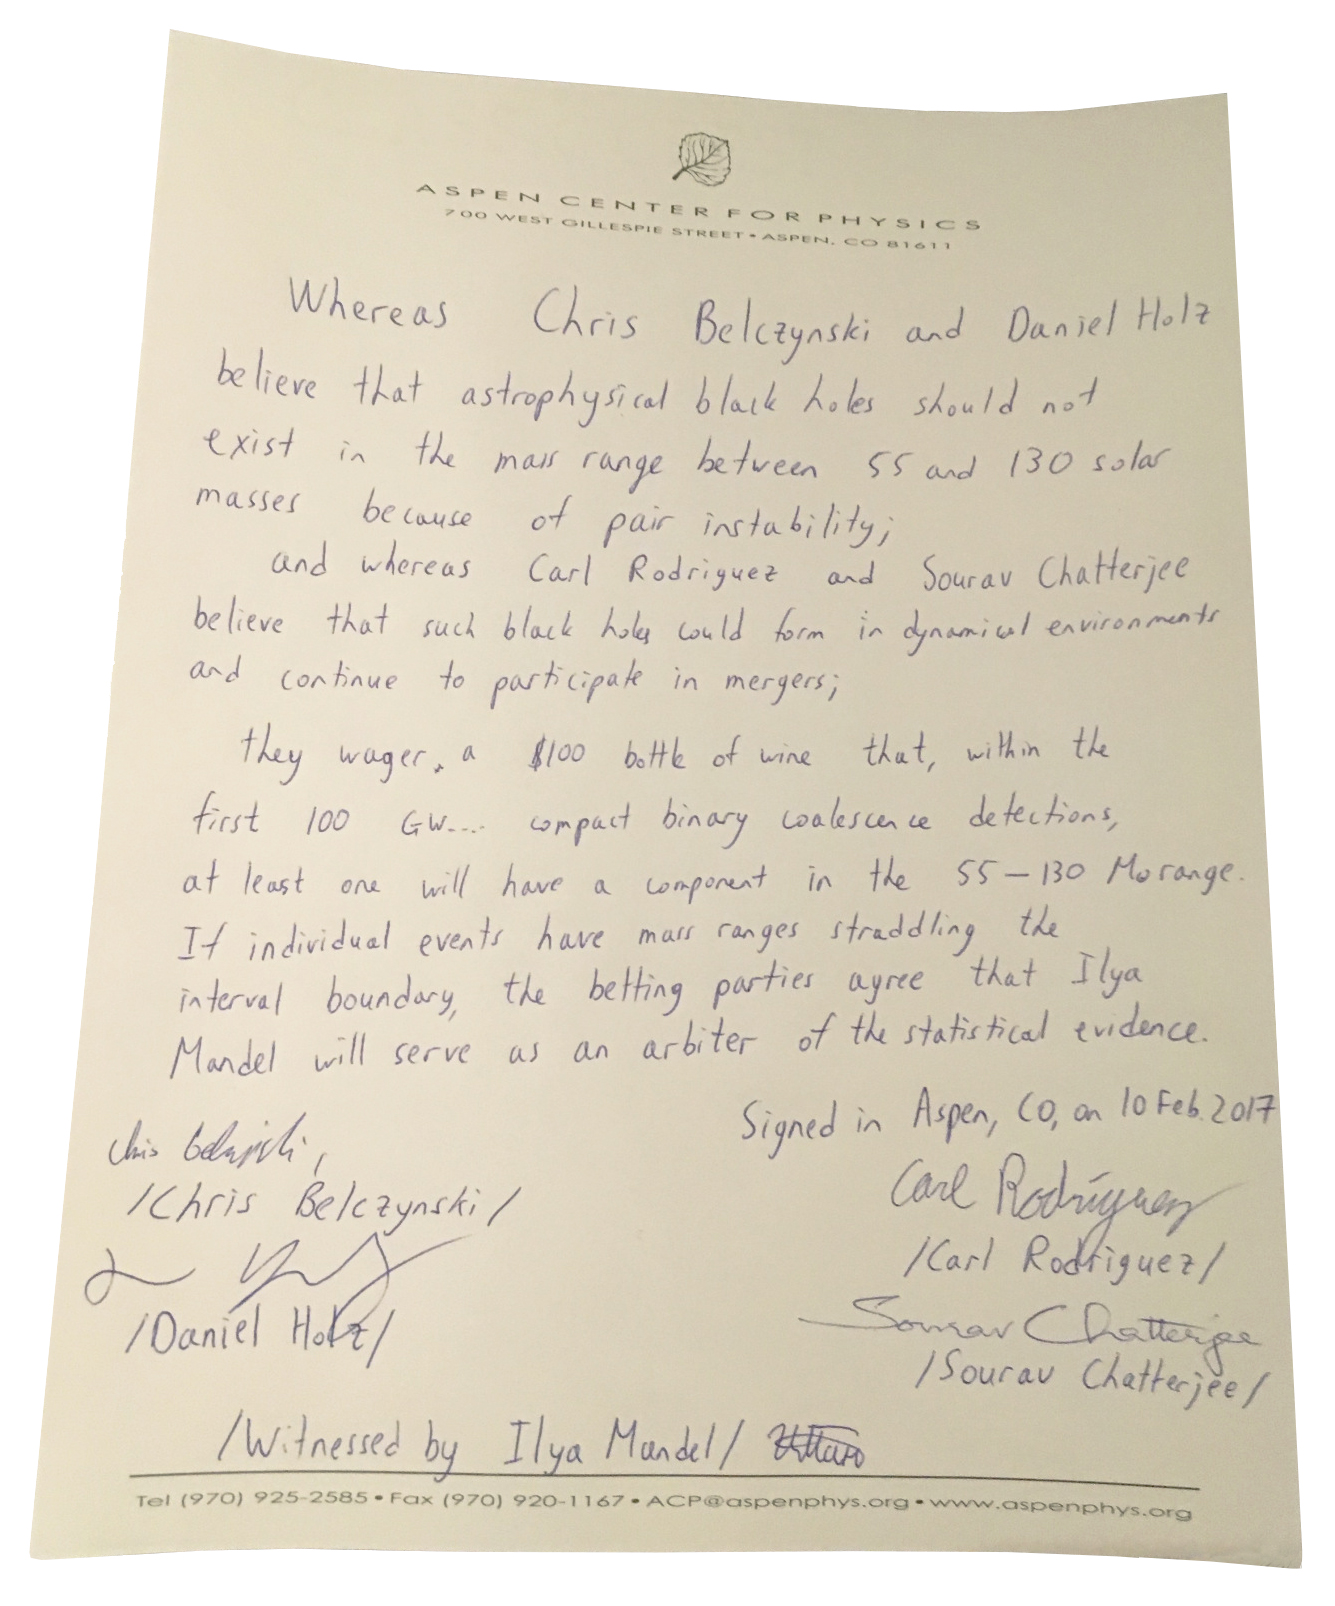 ASPEN CENTER FOR PHYSICS
700 WEST GILLESPIE STREET • ASPEN, CO 81611
Whereas Chris Belczynski and Daniel Holz
believe that astrophysical black holes should not
exist in the mass range between 55 and 130 solar
masses because of pair instability;
and whereas Carl Rodriguez and Sourav Chatterjee
believe that such black holes could form in dynamical environments
and continue to participate in mergers;
they wager a $100 bottle of wine that, within the
first 100 GW.... compact binary coalescence detections,
at least one will have a component in the 55 – 130 Mo range.
If individual events have mass ranges straddling the
interval boundary, the betting parties agree that Ilya
Mandel will serve as an arbiter of the statistical evidence.
Signed in Aspen, CO, on 10 Feb. 2017
Chris Belczynski,
Carl Rodriguez
/Chris Belczynski/
/Carl Rodriguez/
Sourav Chatterjee
/Daniel Holz/
/Sourav Chatterjee/
/Witnessed by Ilya Mandel/
Tel (970) 925-2585 • Fax (970) 920-1167 • ACP@aspenphys.org • www.aspenphys.org